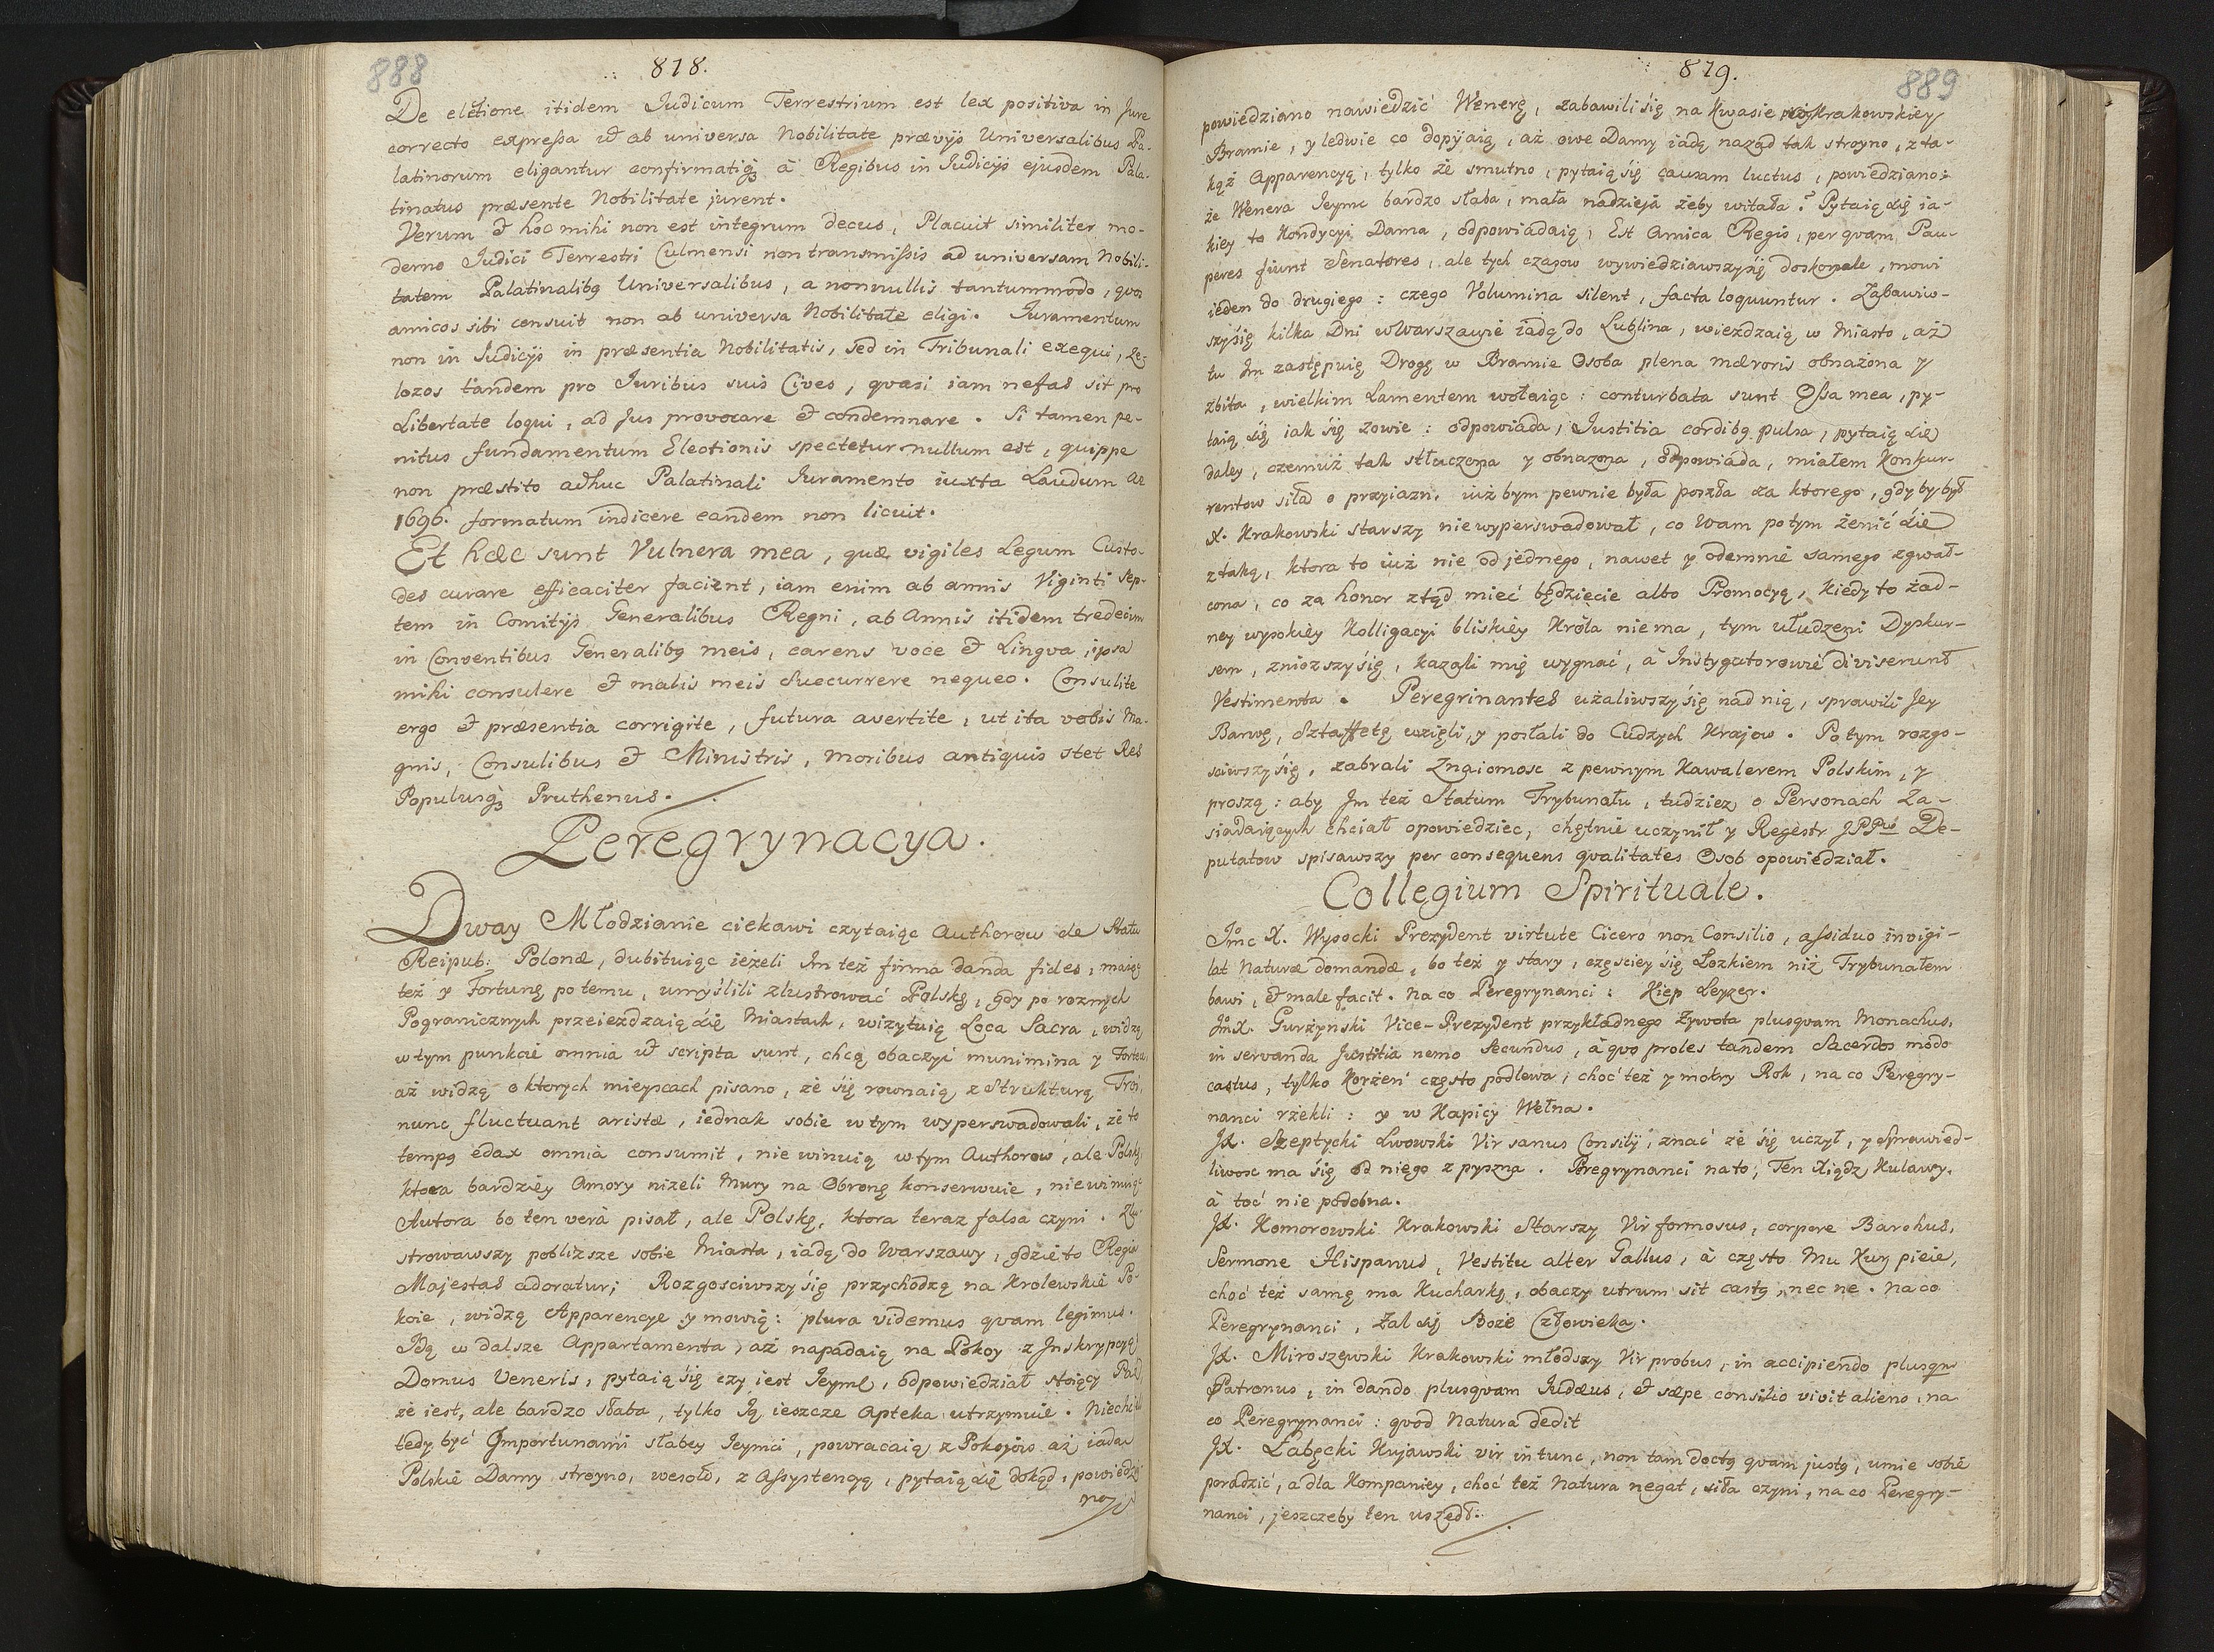 888
818.
De elećtione itidem Judicum Terrestrium est lex positiva in Jure
correcto expressa ut ab universa Nobilitate prævijs Universalibus Pa-
latinorum eligantur confirmatiq; à Regibus in Judicijs ejusdem Pala-
tinatus præsente Nobilitate jurent.
Verum & hoc mihi non est integrum decus, Placuit similiter mo-
derno Judici Terrestri Culmensi non transmissis ad universam Nobili-
tatem Palatinalibq Universalibus, a nonnullis tantummodo, quos
amicos sibi censuit non ab universa Nobilitate eligi. Juramentum
non in Judicijs in præsentia Nobilitatis, sed in Tribunali exequi, Ze-
lozos tandem pro Juribus suis Cives, quasi iam nefas sit pro
Libertate loqui, ad Jus provocare & condemnare. Si tamen pe-
nitus fundamentum Electionis spectetur nullum est, quippe
non præstito adhuc Palatinali Juramento iuxta Laudum Ae
1696. formatum indicere eandem non licuit.
Et hæc sunt Vulnera mea, quæ vigiles Legum Custo-
des curare efficaciter facient, iam enim ab annis Viginti Sep-
tem in Comitijs Generalibus Regni, ab Annis itidem tredecim
in Conventibus Generalibq meis, carens voce & Lingva ipsa
mihi consulere & malis meis succurrere nequeo. Consulite
ergo & præsentia corrigite, futura avertite, ut ita vobis Ma-
gnis, Consulibus & Ministris, moribus antiquis stet Res
Populusq; Pruthenus.
Peregrynacya.
Dway Młodzianie ciekawi czytaiąc Authorow de Statu
Reipub: Polonæ, dubituiąc ieżeli Im też firma danda fides, maiąc
też y Fortunę po temu, umyślili zlustrować Polskę, gdy po roznych
Pogranicznych przeieżdzaią się Miastach, wizytuią Loca Sacra, widzą
w tym punkcie omnia ut scripta sunt, chcą obaczyć munimina y Fortec
aż widzą o ktorych mieyscach pisano, że się rownaią z Strukturą Troi,
nunc fluctuant aristæ, iednak sobie w tym wyperswadowali, że to
tempq edax omnia consumit, nie winuią w tym Authorow, ale Polskę
ktora bardziey Amory niżeli Mury na Obronę konserwuie, nie winuią
Autora bo ten verà pisał, ale Polskę, ktora teraz falsa czyni. Zlu-
strowawszy poblizsze sobie Miasta, iadą do Warszawy, gdzie to Regia
Majestas adoratur; Rozgosciwszy się przychodzą na Krolewskie Po-
koie, widzą Apparencye y mowią: plura videmus qvam legimus.
Idą w dalsze Appartamenta, aż napadaią na Pokoy z Inskrypcyą
Domus Veneris, pytaią się czy iest Jeymć, odpowiedział stoiący Paź
że iest, ale bardzo słaba, tylko Ją ieszcze Apteka utrzymuie. Niechcąc
tedy być Importunami słabey Jeymci, powracaią z Pokojow aż iadą
Polskie Damy stroyno, wesoło, z Assystencyą, pytaią się dokąd, powiedzia
no
889
819.
powiedziano nawiedzić Wenerę, zabawili się na Kwasie przy Krakowskiey
Bramie, y ledwie co dopijaią, aż owe Damy iadą nazad tak stroyno, z ta-
kąż Apparencyą, tylko że smutno, pytaią się causam luctus, powiedziano:
że Wenera Jeymć bardzo słaba, mała nadzieja żeby witała? Pytaią się ia-
kiey to Kondycyi Dama, odpowiadaią, Est Amica Regis, per qvam Pau-
peres fiunt Senatores, ale tych czasow wywiedziawszy się doskonale, mowi
ieden do drugiego: czego Volumina silent, facta loquuntur. Zabawiw-
szy się kilka Dni w Warszawie iadą do Lublina, wieżdzaią w Miasto, aż
tu Im zastępuię Drogę w Bramie Osoba plena mæroris obnażona y
zbita, wielkim Lamentem wołaiąc: conturbata sunt Ossa mea, py-
taią się iak się zowie: odpowiada, Justitia cordibq pulsa, pytaią się
daley, czemuż tak stłuczona y obnażona, odpowiada, miałem Konkur-
rentow siłá o przyiazn, iuż bym pewnie była poszła za ktorego, gdy by był
X. Krakowski starszy nie wyperswadował, co Wam po tym żenić się
z taką, ktora to iuż nie od jednego, nawet y odemnie samego zgwał-
cona, co za honor ztąd mieć będziecie albo Promocyą, kiedy to żad-
ney wysokiey Kolligacyi bliskiey Króla niema, tym ułudzeni Dyskur-
sem, zniozszy się, kazali mię wygnać, à Instygatorowie diviserunt
Vestimenta. Peregrinantes użaliwszy się nad nią, sprawili Jey
Barwę, Sztaffetę wzięli, y posłali do Cudzych Krajow. Po tym rozgo-
sciwszy się, zabrali Znaiomosc z pewnym Kawalerem Polskim, y
proszą: aby Im też Statum Trybunału, tudziez o Personach Za-
siadaiących chciał opowiedziec, chętnie uczynił y Regestr JPPw De-
putatow spisawszy per consequens qvalitates Osob opowiedział.
Collegium Spirituale.
Jmc X. Wysocki Prezydent virtute Cicero non Consilio, assiduo invigi-
lat Naturæ domandæ, bo też y stary, częsciey się Łozkiem niż Trybunałem
bawi, & male facit. Na co Peregrynanci: Kiep Leyzer.
Jm X. Gurżyński Vice-Prezydent przykładnego żywota plusqvam Monachus,
in servanda Justitia nemo Secundus, à qvo proles tandem Sacerdos modo
castus, tylko Korżeń często podlewa, choć też y mokry Rok, na co Peregry-
nanci rżekli: y w Kapicy Wełna.
JX. Szeptycki Lwowski Vir sanus Consilij, znać że się uczył, y Sprawied-
liwosc ma się od niego z pyszna. Peregrynanci na to; Ten Xiądz Kulawy,
à toć nie podobna.
JX. Komorowski Krakowski Starszy Vir formosus, corpore Bachus,
Sermone Hispanus, Vestitu alter Gallus, à często Mu Kur pieie,
choć też samą ma Kucharkę, obaczy utrum sit castq, nec ne. Na co
Peregrynanci, żal się Boże Człowieka.
JX. Miroszewski Krakowski młodszy Vir probus, in accipiendo plusqm
Patronus, in dando plusqvam Judæus, & sæpe consilio vivit alieno, na
co Peregrynanci: qvod Natura dedit
JX. Łabęcki Kujawski vir in tunc, non tam doctq qvam justq, umie sobie
poradzić, a dla Kompaniey, choć też Natura negat, siła czyni, na co Peregry-
nanci, jeszczeby ten uszedł.